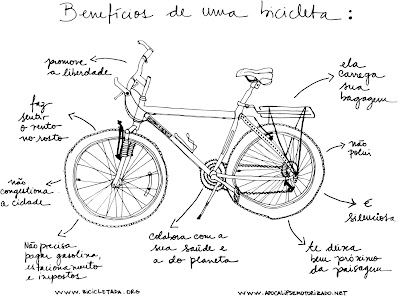 Benefícios de uma bicicleta:
promove
a liberdade
ela
carrega
sua
bagagem
faz
sentir
o vento
no rosto
não
polui
não
congestiona
a cidade
é
silenciosa
Não precisa
pagar gasolina,
estacionamento
e impostos
colabora com a
sua saúde e a
do planeta
te deixa
bem próximo
da paisagem
www.bicicletada.org
www.apocalipsemotorizado.net